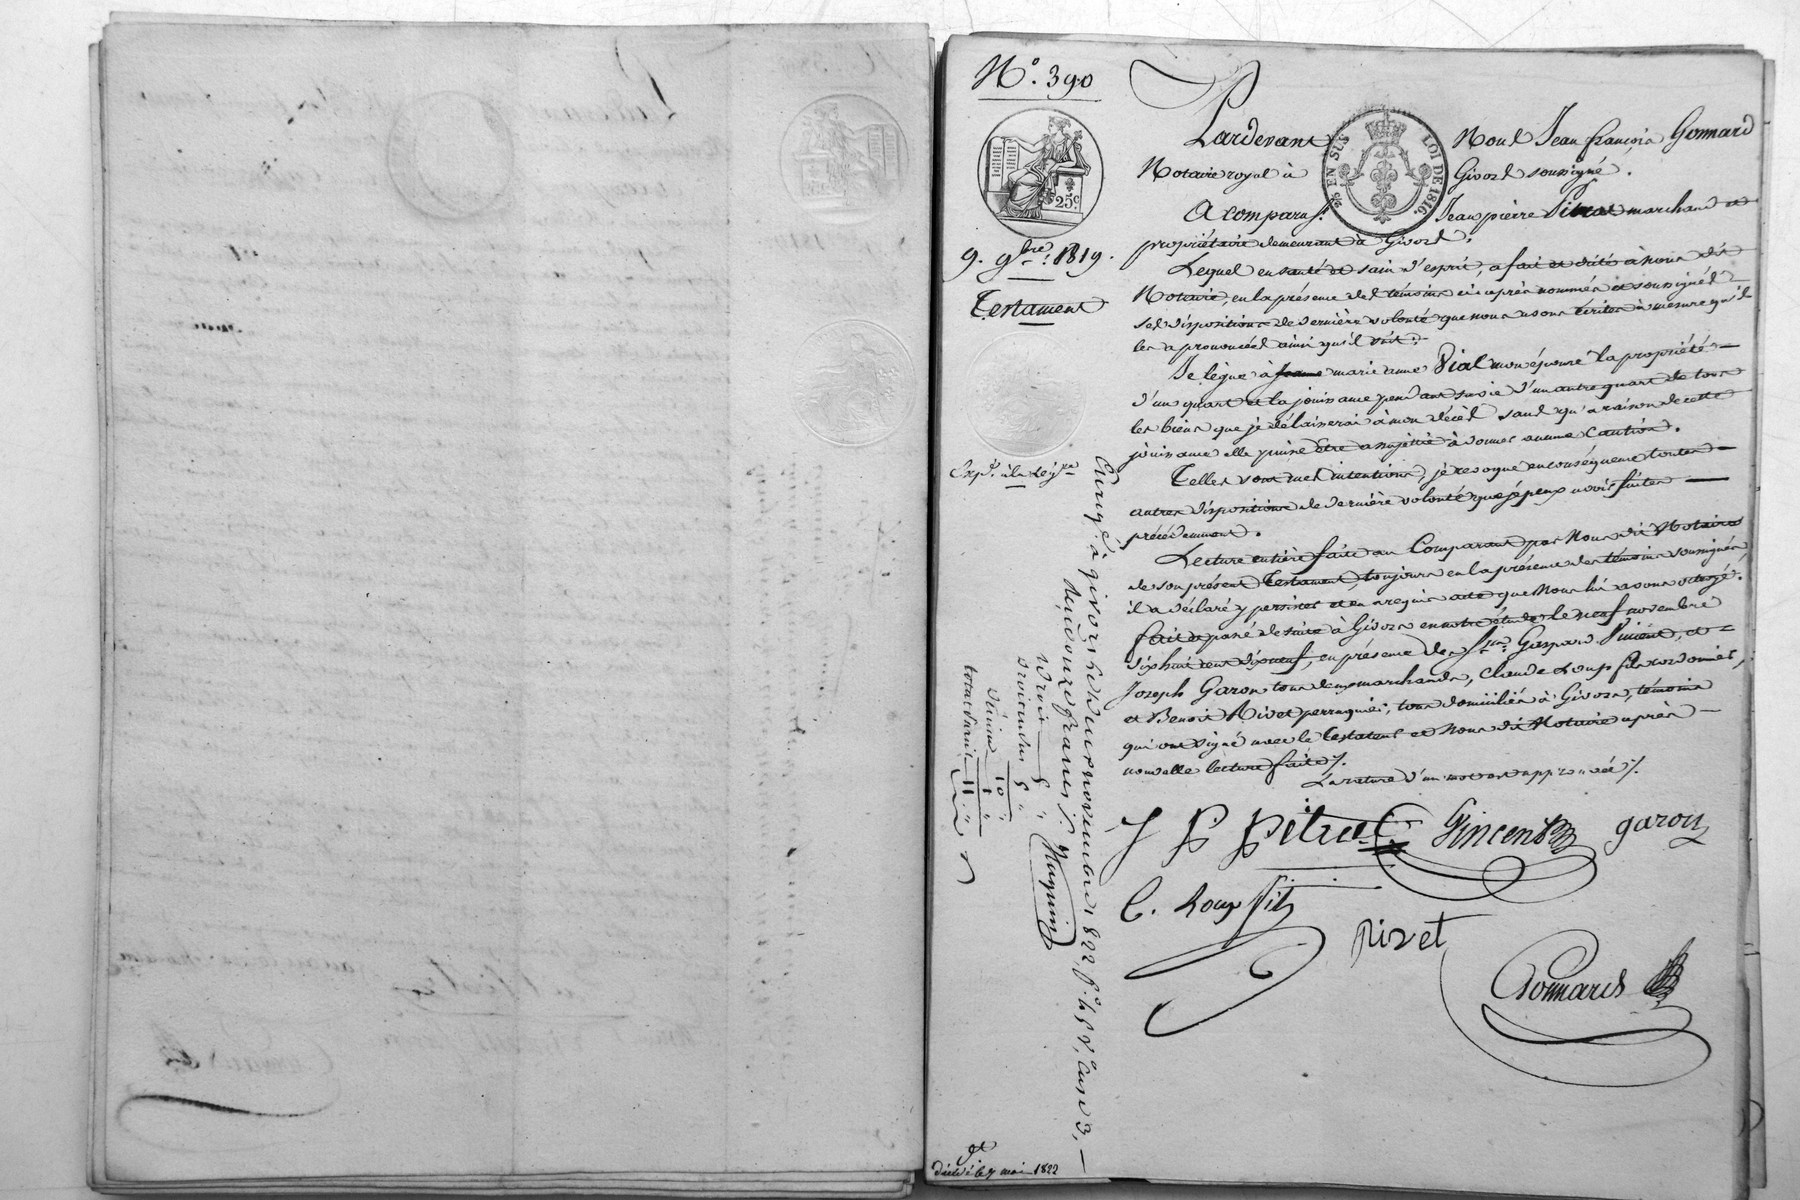 N.° 390
25c
EN SUS LOI DE 1816.
9. 9bre. 1819.
Testament
Pardevant Nous Jean françois Gonnard
Notaire royal à Givors soussigné.
A comparu: Jean pierre Pitrat marchand et
propriétaire demeurant à Givors.
Lequel en santé et sain d'esprit, a fait et dicté à nous dit
Notaire, en la présence des témoins ci-après nommés et soussignés
ses dispositions de dernière volonté que nous avons écrites à mesure qu'il
les a prononcées ainsi qu'il suit:
Je lègue à marie anne Vial mon épouse la propriété
d'un quart et la jouissance pendant sa vie d'un autre quart de tous
les biens que je délaisserai à mon décès sans qu'a raison de cette
jouissance elle puisse être assujettie à donner aucune caution.
Telles sont mes intentions, je révoque en conséquence toutes
autres dispositions de dernière volonté que je peux avoir faites
précédemment.
Lecture entière faite au Comparant par Nous dit Notaire
de son présent Testament, toujours en la présence des témoins soussignés,
il a déclaré y persister et en a requis acte que Nous lui avons octroyé.
fait et passé de suite à Givors en notre étude le neuf novembre
dix huit cent dix neuf, en présence de Srs. Gaspard Vincent, et
Joseph Garon tous deux marchands, Claude Roux fils cordonnier,
et Benoit Rivet perruquier, tous domiciliés à Givors, témoins
qui ont signé avec le testateur et Nous dit Notaire après
nouvelle lecture faite /.
La rature d'un mot est approuvée /.
J P Pitrat Vincent garon
C. Roux fils
Rivet
Gonnard
Enregé. à givors le deux novembre 1822, f° 45 v°, Case 3,
Reçu onze francs /.
droit 5 "
10 "
1 "
total 11 "
décédé le 7 mai 1822